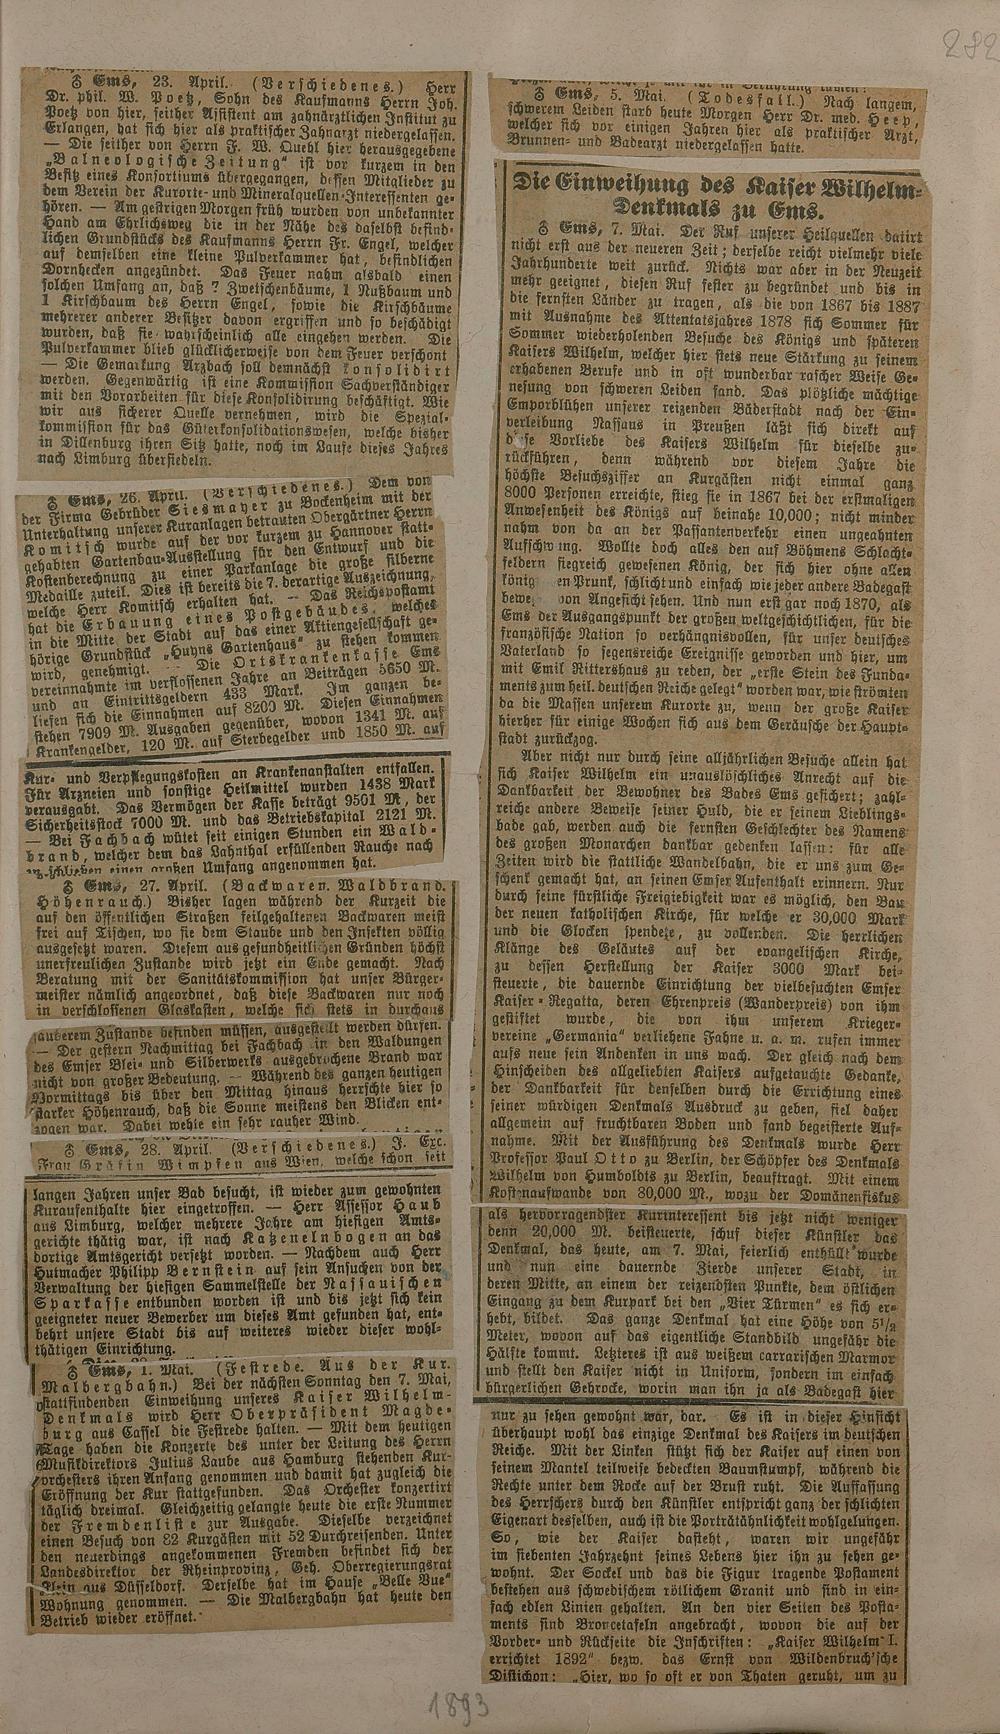 282
♁ Ems, 23. April. (Verschiedenes.) Herr
Dr. phil. W. Poetz, Sohn des Kaufmanns Herrn Joh.
Poetz von hier, seither Assistent am zahnärztlichen Institut zu
Erlangen, hat sich hier als praktischer Zahnarzt niedergelassen.
— Die seither von Herrn F. W. Quehl hier herausgegebene
„Balneologische Zeitung“ ist vor kurzem in den
Besitz eines Konsortiums übergegangen, dessen Mitglieder zu
dem Verein der Kurorte- und Mineralquellen-Interessenten ge-
hören. — Am gestrigen Morgen früh wurden von unbekannter
Hand am Ehrlichsweg die in der Nähe des daselbst befind-
lichen Grundstücks des Kaufmanns Herrn Fr. Engel, welcher
auf demselben eine kleine Pulverkammer hat, befindlichen
Dornhecken angezündet. Das Feuer nahm alsbald einen
solchen Umfang an, daß 7 Zwetschenbäume, 1 Nußbaum und
1 Kirschbaum des Herrn Engel, sowie die Kirschbäume
mehrerer anderer Besitzer davon ergriffen und so beschädigt
wurden, daß sie wahrscheinlich alle eingehen werden. Die
Pulverkammer blieb glücklicherweise von dem Feuer verschont
— Die Gemarkung Arzbach soll demnächst konsolidirt
werden. Gegenwärtig ist eine Kommission Sachverständiger
mit den Vorarbeiten für diese Konsolidirung beschäftigt. Wie
wir aus sicherer Quelle vernehmen, wird die Spezial-
kommission für das Güterkonsolidationswesen, welche bisher
in Dillenburg ihren Sitz hatte, noch im Laufe dieses Jahres
nach Limburg übersiedeln.
♁ Ems, 26. April. (Verschiedenes.) Dem von
der Firma Gebrüder Siesmayer zu Bockenheim mit der
Unterhaltung unserer Kuranlagen betrauten Obergärtner Herrn
Komitsch wurde auf der vor kurzem zu Hannover statt-
gehabten Gartenbau-Ausstellung für den Entwurf und die
Kostenberechnung zu einer Parkanlage die große silberne
Medaille zuteil. Dies ist bereits die 7. derartige Auszeichnung,
welche Herr Komitsch erhalten hat. — Das Reichspostamt
hat die Erbauung eines Postgebäudes, welches
in die Mitte der Stadt auf das einer Aktiengesellschaft ge-
hörige Grundstück „Huyns Gartenhaus“ zu stehen kommen
wird, genehmigt. — Die Ortskrankenkasse Ems
vereinnahmte im verflossenen Jahre an Beiträgen 5650 M.
und an Eintrittsgeldern 433 Mark. Im ganzen be-
liefen sich die Einnahmen auf 8200 M. Diesen Einnahmen
stehen 7909 M. Ausgaben gegenüber, wovon 1341 M. auf
Krankengelder, 120 M. auf Sterbegelder und 1850 M. auf
Kur- und Verpflegungskosten an Krankenanstalten entfallen.
Für Arzneien und sonstige Heilmittel wurden 1438 Mark
verausgabt. Das Vermögen der Kasse beträgt 9501 M, der
Sicherheitsstock 7000 M. und das Betriebskapital 2121 M.
— Bei Fachbach wütet seit einigen Stunden ein Wald-
brand, welcher dem das Lahnthal erfüllenden Rauche nach
zu schließen einen großen Umfang angenommen hat.
♁ Ems, 27. April. (Backwaren. Waldbrand.
Höhenrauch.) Bisher lagen während der Kurzeit die
auf den öffentlichen Straßen feilgehaltenen Backwaren meist
frei auf Tischen, wo sie dem Staube und den Insekten völlig
ausgesetzt waren. Diesem aus gesundheitlichen Gründen höchst
unerfreulichen Zustande wird jetzt ein Ende gemacht. Nach
Beratung mit der Sanitätskommission hat unser Bürger-
meister nämlich angeordnet, daß diese Backwaren nur noch
in verschlossenen Glaskasten, welche sich stets in durchaus
sauberem Zustande befinden müssen, ausgestellt werden dürfen.
— Der gestern Nachmittag bei Fachbach in den Waldungen
des Emser Blei- und Silberwerks ausgebrochene Brand war
nicht von großer Bedeutung. — Während des ganzen heutigen
Vormittags bis über den Mittag hinaus herrschte hier so
starker Höhenrauch, daß die Sonne meistens den Blicken ent-
zogen war. Dabei wehte ein sehr rauher Wind.
♁ Ems, 28. April. (Verschiedenes.) J. Erc.
Frau Gräfin Wimpfen aus Wien, welche schon seit
langen Jahren unser Bad besucht, ist wieder zum gewohnten
Kuraufenthalte hier eingetroffen. — Herr Assessor Haub
aus Limburg, welcher mehrere Jahre am hiesigen Amts-
gerichte thätig war, ist nach Katzenelnbogen an das
dortige Amtsgericht versetzt worden. — Nachdem auch Herr
Hutmacher Philipp Bernstein auf sein Ansuchen von der
Verwaltung der hiesigen Sammelstelle der Nassauischen
Sparkasse entbunden worden ist und bis jetzt sich kein
geeigneter neuer Bewerber um dieses Amt gefunden hat, ent-
behrt unsere Stadt bis auf weiteres wieder dieser wohl-
thätigen Einrichtung.
♁ Ems, 1. Mai. (Festrede. Aus der Kur.
Malbergbahn.) Bei der nächsten Sonntag den 7. Mai,
stattfindenden Einweihung unseres Kaiser Wilhelm-
Denkmals wird Herr Oberpräsident Magde-
burg aus Cassel die Festrede halten. — Mit dem heutigen
Tage haben die Konzerte des unter der Leitung des Herrn
Musikdirektors Julius Laube aus Hamburg stehenden Kur-
orchesters ihren Anfang genommen und damit hat zugleich die
Eröffnung der Kur stattgefunden. Das Orchester konzertirt
täglich dreimal. Gleichzeitig gelangte heute die erste Nummer
der Fremdenliste zur Ausgabe. Dieselbe verzeichnet
einen Besuch von 82 Kurgästen mit 52 Durchreisenden. Unter
den neuerdings angekommenen Fremden befindet sich der
Landesdirektor der Rheinprovinz, Geh. Oberregierungsrat
Klein aus Düsseldorf. Derselbe hat im Hause „Belle Vue“
Wohnung genommen. — Die Malbergbahn hat heute den
Betrieb wieder eröffnet.
♁ Ems, 5. Mai. (Todesfall.) Nach langem,
schwerem Leiden starb heute Morgen Herr Dr. med. Heep,
welcher sich vor einigen Jahren hier als praktischer Arzt,
Brunnen- und Badearzt niedergelassen hatte.
Die Einweihung des Kaiser Wilhelm-
Denkmals zu Ems.
♁ Ems, 7. Mai. Der Ruf unserer Heilquellen datirt
nicht erst aus der neueren Zeit; derselbe reicht vielmehr viele
Jahrhunderte weit zurück. Nichts war aber in der Neuzeit
mehr geeignet, diesen Ruf fester zu begründet und bis in
die fernsten Länder zu tragen, als die von 1867 bis 1887
mit Ausnahme des Attentatsjahres 1878 sich Sommer für
Sommer wiederholenden Besuche des Königs und späteren
Kaisers Wilhelm, welcher hier stets neue Stärkung zu seinem
erhabenen Berufe und in oft wunderbar rascher Weise Ge-
nesung von schweren Leiden fand. Das plötzliche mächtige
Emporblühen unserer reizenden Bäderstadt nach der Ein-
verleibung Nassaus in Preußen läßt sich direkt auf
diese Vorliebe des Kaisers Wilhelm für dieselbe zu-
rückführen, denn während vor diesem Jahre die
höchste Besuchsziffer an Kurgästen nicht einmal ganz
8000 Personen erreichte, stieg sie in 1867 bei der erstmaligen
Anwesenheit des Königs auf beinahe 10,000; nicht minder
nahm von da an der Passantenverkehr einen ungeahnten
Aufschwung. Wollte doch alles den auf Böhmens Schlacht-
feldern siegreich gewesenen König, der sich hier ohne allen
königlichen Prunk, schlicht und einfach wie jeder andere Badegast
bewegte, von Angesicht sehen. Und nun erst gar noch 1870, als
Ems der Ausgangspunkt der großen weltgeschichtlichen, für die
französische Nation so verhängnisvollen, für unser deutsches
Vaterland so segensreiche Ereignisse geworden und hier, um
mit Emil Rittershaus zu reden, der „erste Stein des Funda-
ments zum heil. deutschen Reiche gelegt“ worden war, wie strömten
da die Massen unserem Kurorte zu, wenn der große Kaiser
hierher für einige Wochen sich aus dem Geräusche der Haupt-
stadt zurückzog.
Aber nicht nur durch seine alljährlichen Besuche allein hat
sich Kaiser Wilhelm ein unauslöschliches Anrecht auf die
Dankbarkeit der Bewohner des Bades Ems gesichert; zahl-
reiche andere Beweise seiner Huld, die er seinem Lieblings-
bade gab, werden auch die fernsten Geschlechter des Namens
des großen Monarchen dankbar gedenken lassen: für alle
Zeiten wird die stattliche Wandelbahn, die er uns zum Ge-
schenk gemacht hat, an seinen Emser Aufenthalt erinnern. Nur
durch seine fürstliche Freigiebigkeit war es möglich, den Bau
der neuen katholischen Kirche, für welche er 30,000 Mark
und die Glocken spendete, zu vollenden. Die herrlichen
Klänge des Geläutes auf der evangelischen Kirche,
zu dessen Herstellung der Kaiser 3000 Mark bei-
steuerte, die dauernde Einrichtung der vielbesuchten Emser
Kaiser-Regatta, deren Ehrenpreis (Wanderpreis) von ihm
gestiftet wurde, die von ihm unserem Krieger-
vereine „Germania“ verliehene Fahne u. a. m. rufen immer
aufs neue sein Andenken in uns wach. Der gleich nach dem
Hinscheiden des allgeliebten Kaisers aufgetauchte Gedanke,
der Dankbarkeit für denselben durch die Errichtung eines
seiner würdigen Denkmals Ausdruck zu geben, fiel daher
allgemein auf fruchtbaren Boden und fand begeisterte Auf-
nahme. Mit der Ausführung des Denkmals wurde Herr
Professor Paul Otto zu Berlin, der Schöpfer des Denkmals
Wilhelm von Humboldts zu Berlin, beauftragt. Mit einem
Kostenaufwande von 80,000 M., wozu der Domänenfiskus
als hervorragendster Kurinteressent bis jetzt nicht weniger
denn 20,000 M. beisteuerte, schuf dieser Künstler das
Denkmal, das heute, am 7. Mai, feierlich enthüllt wurde
und nun eine dauernde Zierde unserer Stadt, in
deren Mitte, an einem der reizendsten Punkte, dem östlichen
Eingang zu dem Kurpark bei den „Vier Türmen“ es sich er-
hebt, bildet. Das ganze Denkmal hat eine Höhe von 5½
Meter, wovon auf das eigentliche Standbild ungefähr die
Hälfte kommt. Letzteres ist aus weißem carrarischen Marmor
und stellt den Kaiser nicht in Uniform, sondern im einfach
bürgerlichen Gehrocke, worin man ihn ja als Badegast hier
nur zu sehen gewohnt war, dar. Es ist in dieser Hinsicht
überhaupt wohl das einzige Denkmal des Kaisers im deutschen
Reiche. Mit der Linken stützt sich der Kaiser auf einen von
seinem Mantel teilweise bedeckten Baumstumpf, während die
Rechte unter dem Rocke auf der Brust ruht. Die Auffassung
des Herrschers durch den Künstler entspricht ganz der schlichten
Eigenart desselben, auch ist die Porträtähnlichkeit wohlgelungen.
So, wie der Kaiser dasteht, waren wir ungefähr
im siebenten Jahrzehnt seines Lebens hier ihn zu sehen ge-
wohnt. Der Sockel und das die Figur tragende Postament
bestehen aus schwedischem rötlichem Granit und sind in ein-
fach edlen Linien gehalten. An den vier Seiten des Posta-
ments sind Broncetafeln angebracht, wovon die auf der
Vorder- und Rückseite die Inschriften: „Kaiser Wilhelm I.
errichtet 1892“ bezw. das Ernst von Wildenbruch'sche
Distichon: „Hier, wo so oft er von Thaten geruht, um zu
1893